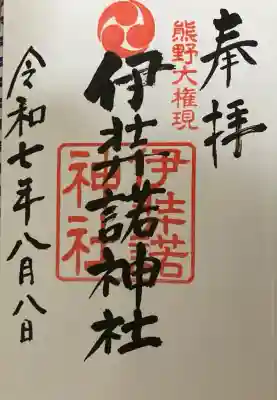 奉拝
熊野大権現
伊弉諾神社
伊弉諾
神社
令和七年八月八日